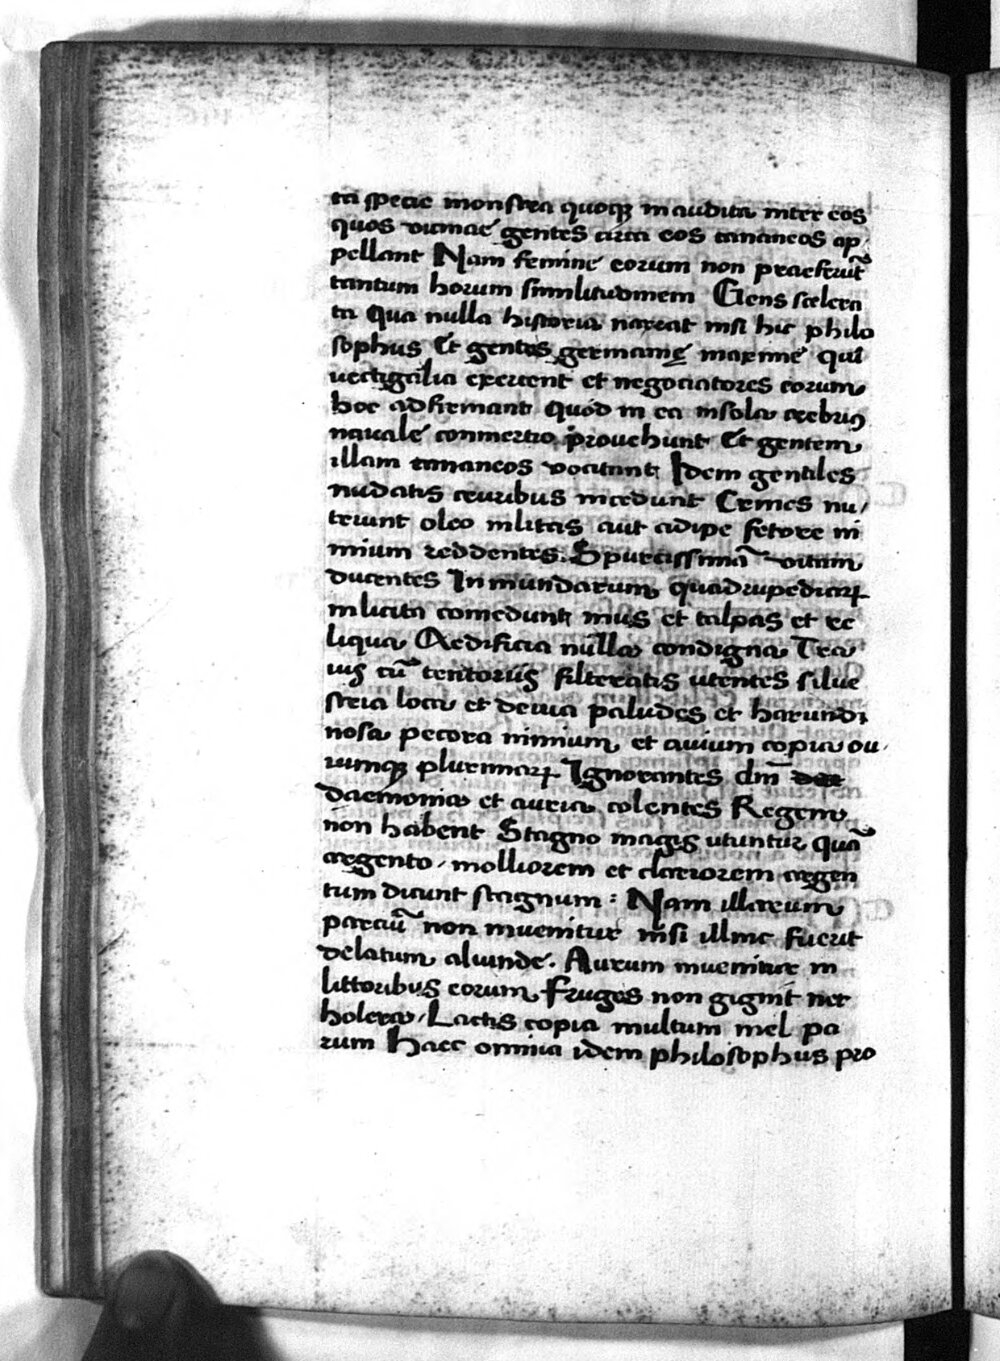 ta specie monstra quoque inaudita inter eos
quos vicinae gentes circa eos cananeos ap
pellant Nam femine eorum non praeferūt
tantum horum similitudinem Gens scelera
ta Qua nulla historia narrat nisi hic philo
sophus Et gentes germanię maxime qui
vectigalia exercent et negociatores eorum
hoc adfirmant Quod in ea insola crebrius
navale conmertio provehunt Et gentem
illam cananeos vocitant Idem gentiles
nudatis cruribus incedunt Crines nu/
triunt oleo inlitas aut adipe fetore ni
mium reddentes. Spurcissimā vitam
ducentes Inmundarum quadrupediarum
inlicita comedunt mus et talpas et re
liqua Aedificia nulla condigna Tra
vis cū tentoriis filteratis utentes silve
stria loca et devia paludes et harundi
nosa pecora nimium et avium copia ou/
iumque plurimarum Ignorantes dm̄
daemonia et auria colentes Regem
non habent Stagno magis utuntur quā
argento / molliorem et clariorem argen
tum dicunt stagnum : Nam illarum
parciū non invenitur nisi illinc fuerit
delatum aliunde. Aurum invenitur in
littoribus eorum Fruges non gignit nec
holera / Lactis copia multum mel pa
rum Haec omnia idem philosophus pro